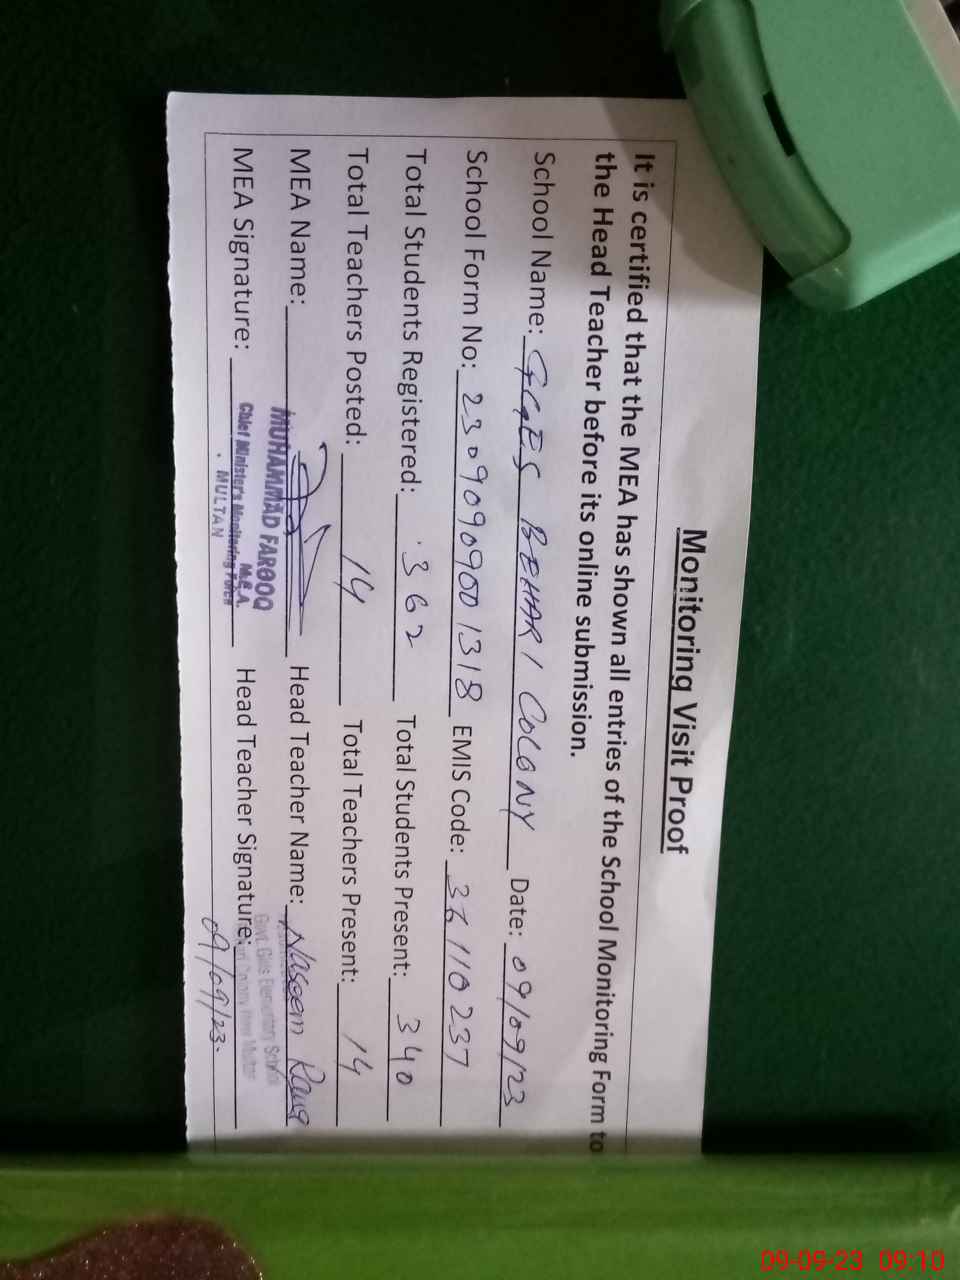 Monitoring Visit Proof
It is certified that the MEA has shown all entries of the School Monitoring Form to
the Head Teacher before its online submission.
School Name: GGES BEHARI COLONY Date: 09/09/23
School Form No: 23090909001318 EMIS Code: 36110237
Total Students Registered: 362 Total Students Present: 340
Total Teachers Posted: 14 Total Teachers Present: 14
MEA Name: Head Teacher Name: Naseem Rana
MUHAMMAD FAROOQ
M.E.A.
Govt. Girls Elementary School
MEA Signature: Chief Minister's Monitoring Force Head Teacher Signature:
MULTAN
09/09/23.
09-09-23 09:10